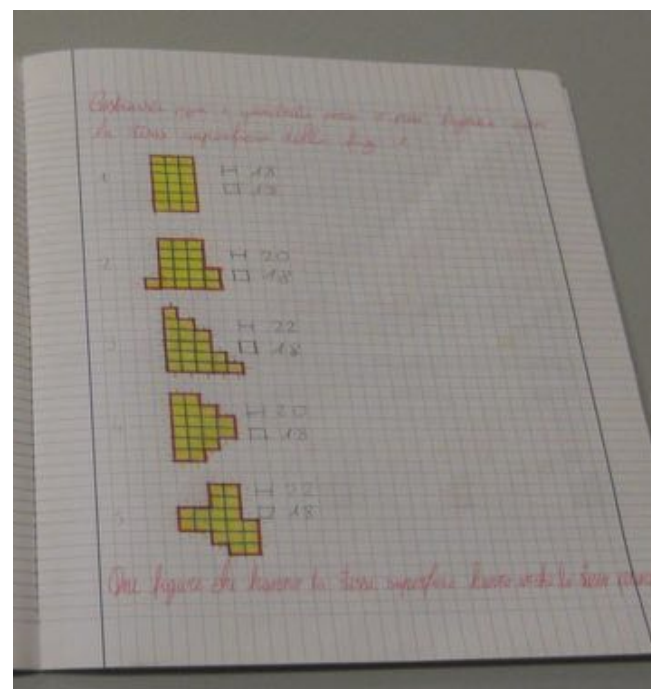 Costruisci con i quadretti una o più figure con
la stessa superficie della fig. 1.
1 H 18
□ 18
2 H 20
□ 18
3 H 22
□ 18
4 H 20
□ 18
5 H 22
□ 18
Due figure che hanno la stessa superficie hanno anche lo stesso